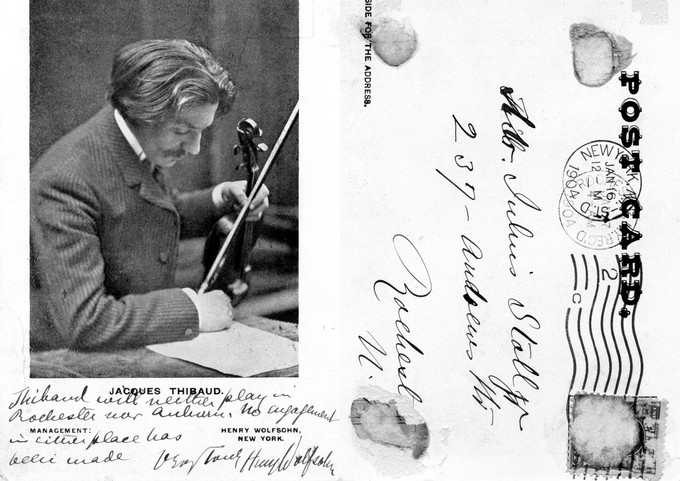 JACQUES THIBAUD.
Thibaud will neither play in
Rochester nor Auburn. No engagement
in either place has
been made
MANAGEMENT:
HENRY WOLFSOHN,
NEW YORK.
Very Truly Henry Wolfsohn
SIDE FOR THE ADDRESS.
POST CARD.
Mr. Julius Stoll Jr
239 - Andrews Str
Rochest
N.
NEW YORK
JAN 16
1904
REC'D
2
C